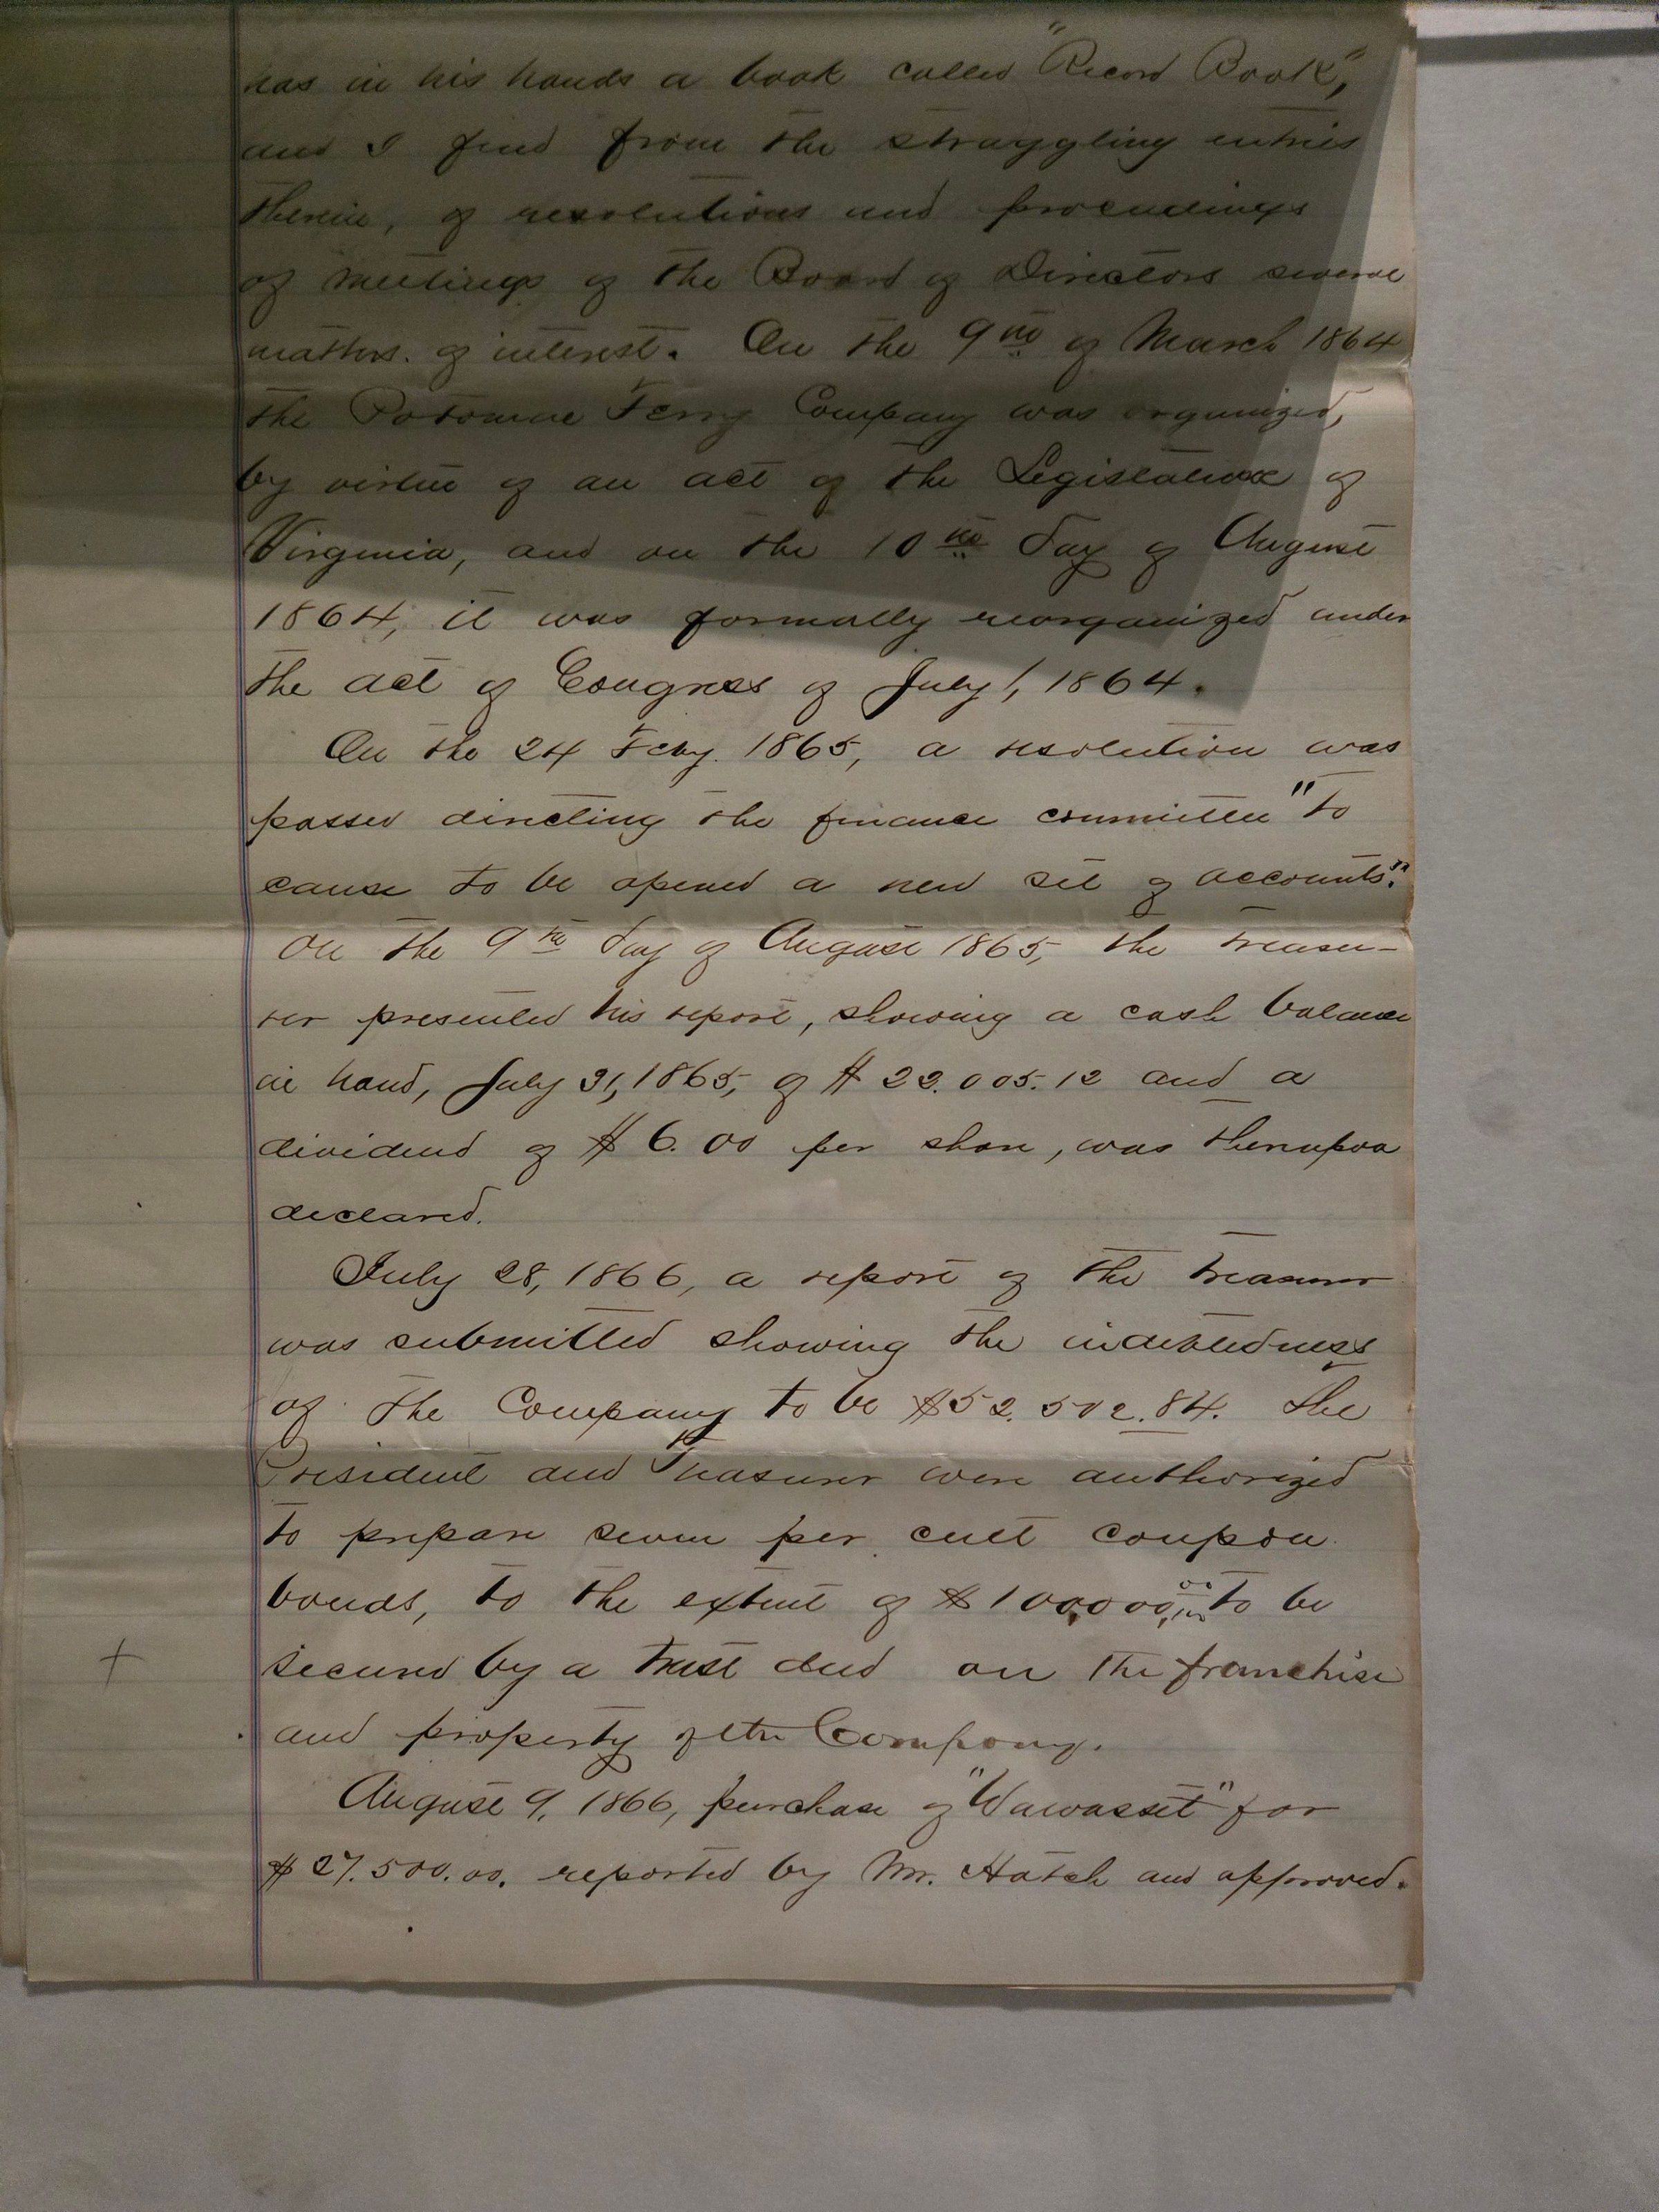 has in his hands a book called "Record Book",
and I find from the straggling entries
therein, of resolutions and proceedings
of meetings of the Board of Directors several
matters of interest. On the 9th of March 1864
the Potomac Ferry Company was organized,
by virtue of an act of the Legislature of
Virginia, and on the 10th day of August
1864, it was formally reorganized under
the act of Congress of July 1, 1864.
On the 24 Feby. 1865, a resolution was
passed directing the finance committee "to
cause to be opened a new set of accounts."
On the 9th day of August 1865, the treasu-
rer presented his report, showing a cash balance
in hand, July 31, 1865, of $ 22.005.12 and a
dividend of $ 6.00 per share, was thereupon
declared.
July 28, 1866, a report of the Treasurer
was submitted showing the indebtedness
of the Company to be $52.502.84. The
President and Treasurer were authorized
to prepare seven per cent coupon
bonds, to the extent of $100,000, to be
+ secured by a trust deed on the franchise
and property of the Company.
August 9, 1866, purchase of "Wawasset" for
$27.500.00. reported by Mr. Hatch and approved.